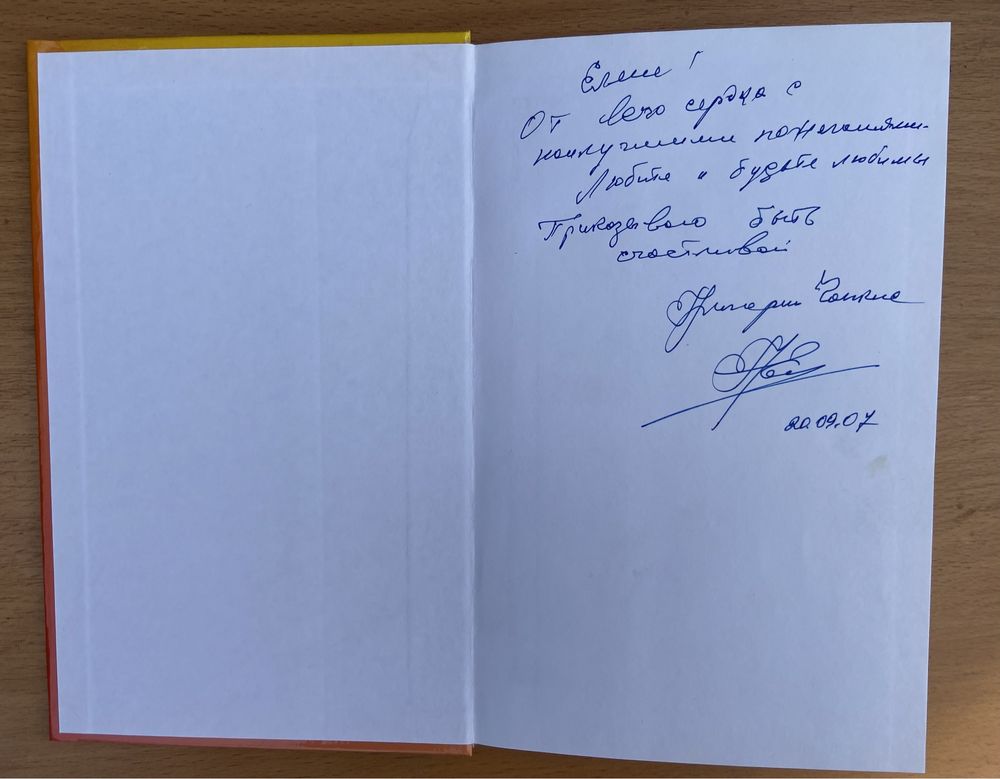 Елене!
От всего сердца с
наилучшими пожеланиями.
Любите и будьте любимы
Приказываю быть
счастливой
Григорий
20.09.07